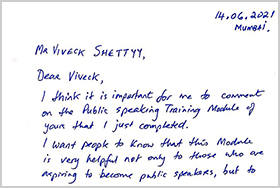 14.06.2021
MUMBAI.
MR VIVECK SHETTYY,
Dear Viveck,
I think it is important for me to comment
on the Public speaking Training Module of
yours that I just completed.
I want people to know that this Module
is very helpful not only to those who are
aspiring to become public speakers, but to